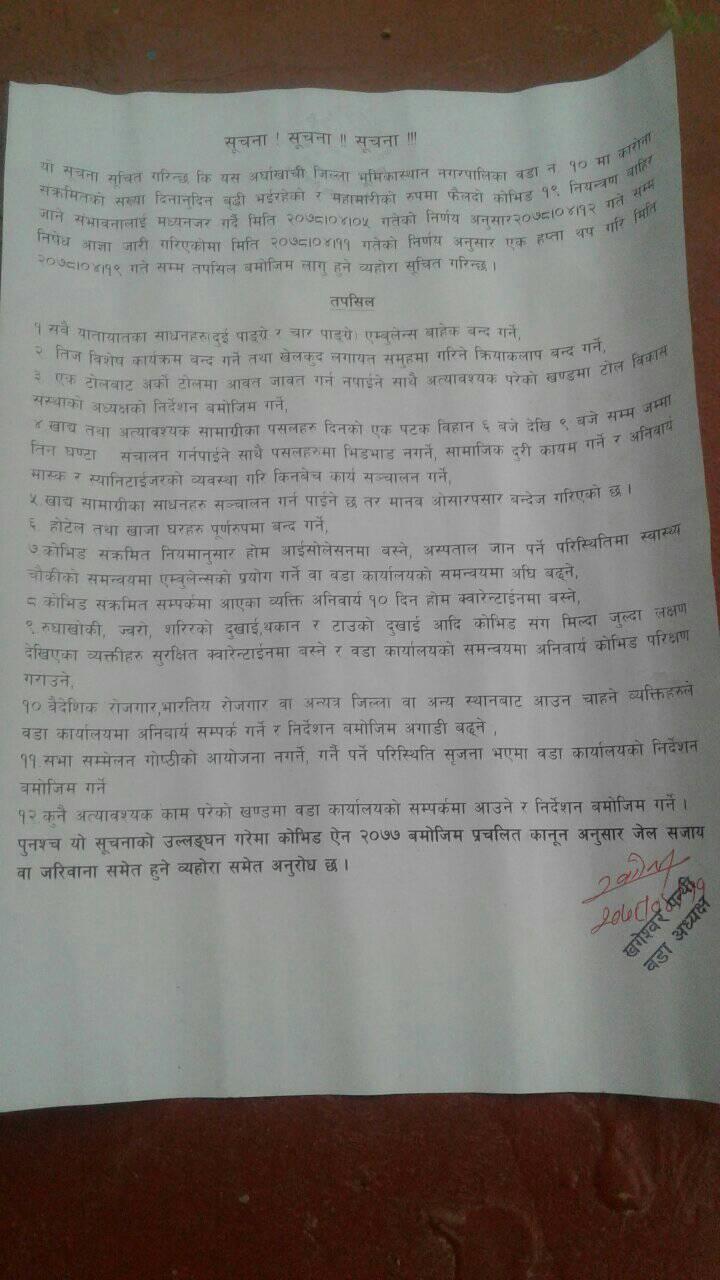 सूचना ! सूचना !! सूचना !!!
यो सूचना सूचित गरिन्छ कि यस अर्घाखाँची जिल्ला भूमिकास्थान नगरपालिका वडा न. १० मा कारोना
सक्रमितको सख्या दिनानुदिन बृद्दी भईरहेको र महामारीको रुपमा फैलदो कोभिड १९ नियन्त्रण बाहिर
जाने सभावनालाई मध्यनजर गर्दै मिति २०७८।०४।०५ गतेको निर्णय अनुसार२०७८।०४।१२ गते सम्म
निषेध आज्ञा जारी गरिएकोमा मिति २०७८।०४।११ गतेको निर्णय अनुसार एक हप्ता थप गरि मिति
२०७८।०४।१९ गते सम्म तपसिल बमोजिम लागु हुने व्यहोरा सूचित गरिन्छ ।
तपसिल
१ सवै यातायातका साधनहरु(दुई पाङ्ग्रे र चार पाङ्ग्रे) एम्बुलेन्स बाहेक बन्द गर्ने,
२. तिज विशेष कार्यक्रम बन्द गर्ने तथा खेलकुद लगायत समुहमा गरिने क्रियाकलाप बन्द गर्ने,
३. एक टोलबाट अर्को टोलमा आवत जावत गर्न नपाईने साथै अत्यावश्यक परेको खण्डमा टोल विकास
सस्थाको अध्यक्षको निर्देशन बमोजिम गर्ने,
४.खाद्य तथा अत्यावश्यक सामाग्रीका पसलहरु दिनको एक पटक विहान ६ बजे देखि ९ बजे सम्म जम्मा
तिन घण्टा सचालन गर्नपाईने साथै पसलहरुमा भिडभाड नगर्ने, सामाजिक दुरी कायम गर्ने र अनिवार्य
मास्क र स्यानिटाईजरको व्यवस्था गरि किनबेच कार्य सञ्चालन गर्ने,
५.खाद्य सामाग्रीका साधनहरु सञ्चालन गर्न पाईने छ तर मानव ओसारपसार बन्देज गरिएको छ ।
६. होटेल तथा खाजा घरहरु पूर्णरुपमा बन्द गर्ने,
७.कोभिड सक्रमित नियमानुसार होम आईसोलेसनमा बस्ने, अस्पताल जान पर्ने परिस्थितिमा स्वास्थ्य
चौकीको समन्वयमा एम्बुलेन्सको प्रयोग गर्ने वा वडा कार्यालयको समन्वयमा अघि बढ्ने,
८ कोभिड सक्रमित सम्पर्कमा आएका व्यक्ति अनिवार्य १० दिन होम क्वारेन्टाईनमा बस्ने,
९.रुघाखोकी, ज्वरो, शरिरको दुखाई,थकान र टाउको दुखाई आदि कोभिड संग मिल्दा जुल्दा लक्षण
देखिएका व्यक्तीहरु सुरक्षित क्वारेन्टाईनमा बस्ने र वडा कार्यालयको समन्वयमा अनिवार्य कोभिड परिक्षण
गराउने,
१० बैदेशिक रोजगार,भारतिय रोजगार वा अन्यत्र जिल्ला वा अन्य स्थानबाट आउन चाहने व्यक्तिहरुले
वडा कार्यालयमा अनिवार्य सम्पर्क गर्ने र निर्देशन बमोजिम अगाडी बढ्ने ,
११ सभा सम्मेलन गोष्ठीको आयोजना नगर्ने, गर्नै पर्ने परिस्थिति सृजना भएमा वडा कार्यालयको निर्देशन
बमोजिम गर्ने
१२ कुनै अत्यावश्यक काम परेको खण्डमा वडा कार्यालयको सम्पर्कमा आउने र निर्देशन बमोजिम गर्ने ।
पुनश्च यो सूचनाको उल्लङ्घन गरेमा कोभिड ऐन २०७७ बमोजिम प्रचलित कानून अनुसार जेल सजाय
वा जरिवाना समेत हुने व्यहोरा समेत अनुरोध छ ।
२०७८।०४।११
खगेश्वर पन्थी
वडा अध्यक्ष